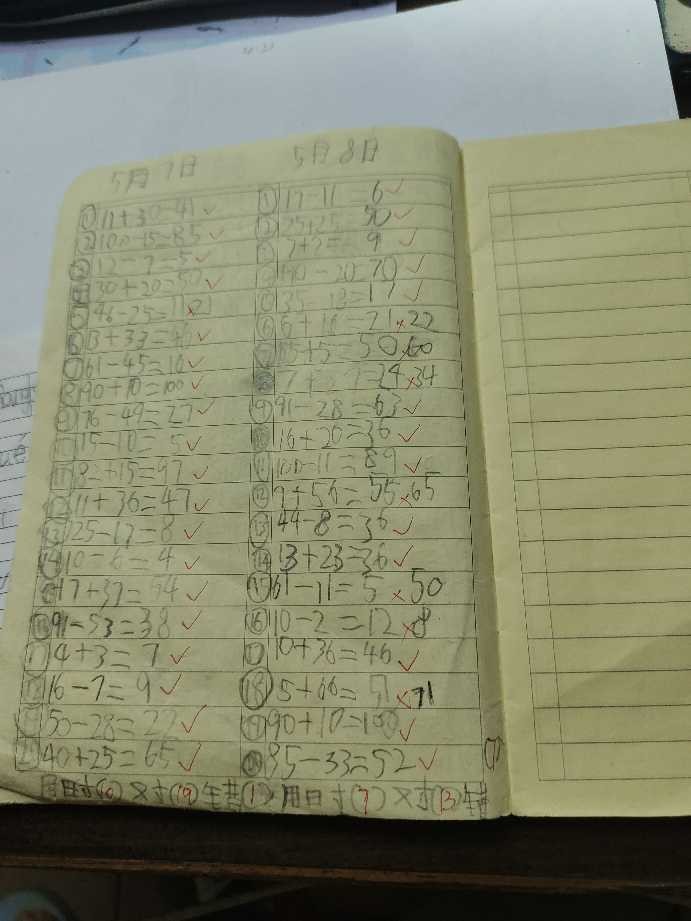 5月7日
①11+30=41✓
②100-15=85✓
③12-7=5✓
④30+20=50✓
⑤46-25=11×21
⑥13+33=46✓
⑦61-45=16✓
⑧90+10=100✓
⑨76-49=27✓
⑩15-10=5✓
⑪82+15=97✓
⑫11+36=47✓
⑬25-17=8✓
⑭10-6=4✓
17+37=54✓
⑯91-53=38✓
4+3=7✓
16-7=9✓
50-28=22✓
40+25=65✓
5月8日
①17-11=6✓
②25+25=50✓
7+2=9✓
90-20=70✓
35-18=17✓
⑥6+16=21×22
5+5=50×60
7+ 7=24×34
⑨91-28=63✓
⑩16+20=36✓
⑪100-11=89✓
⑫9+56=55×65
⑬44-8=36✓
⑭13+23=36✓
⑮61-11=5×50
⑯10-2=12×8
⑰10+36=46✓
⑱5+66=51×71
⑲90+10=100✓
⑳85-33=52✓
用时 对(19) 错(1) 用时(7) 对(13) 错
(7)